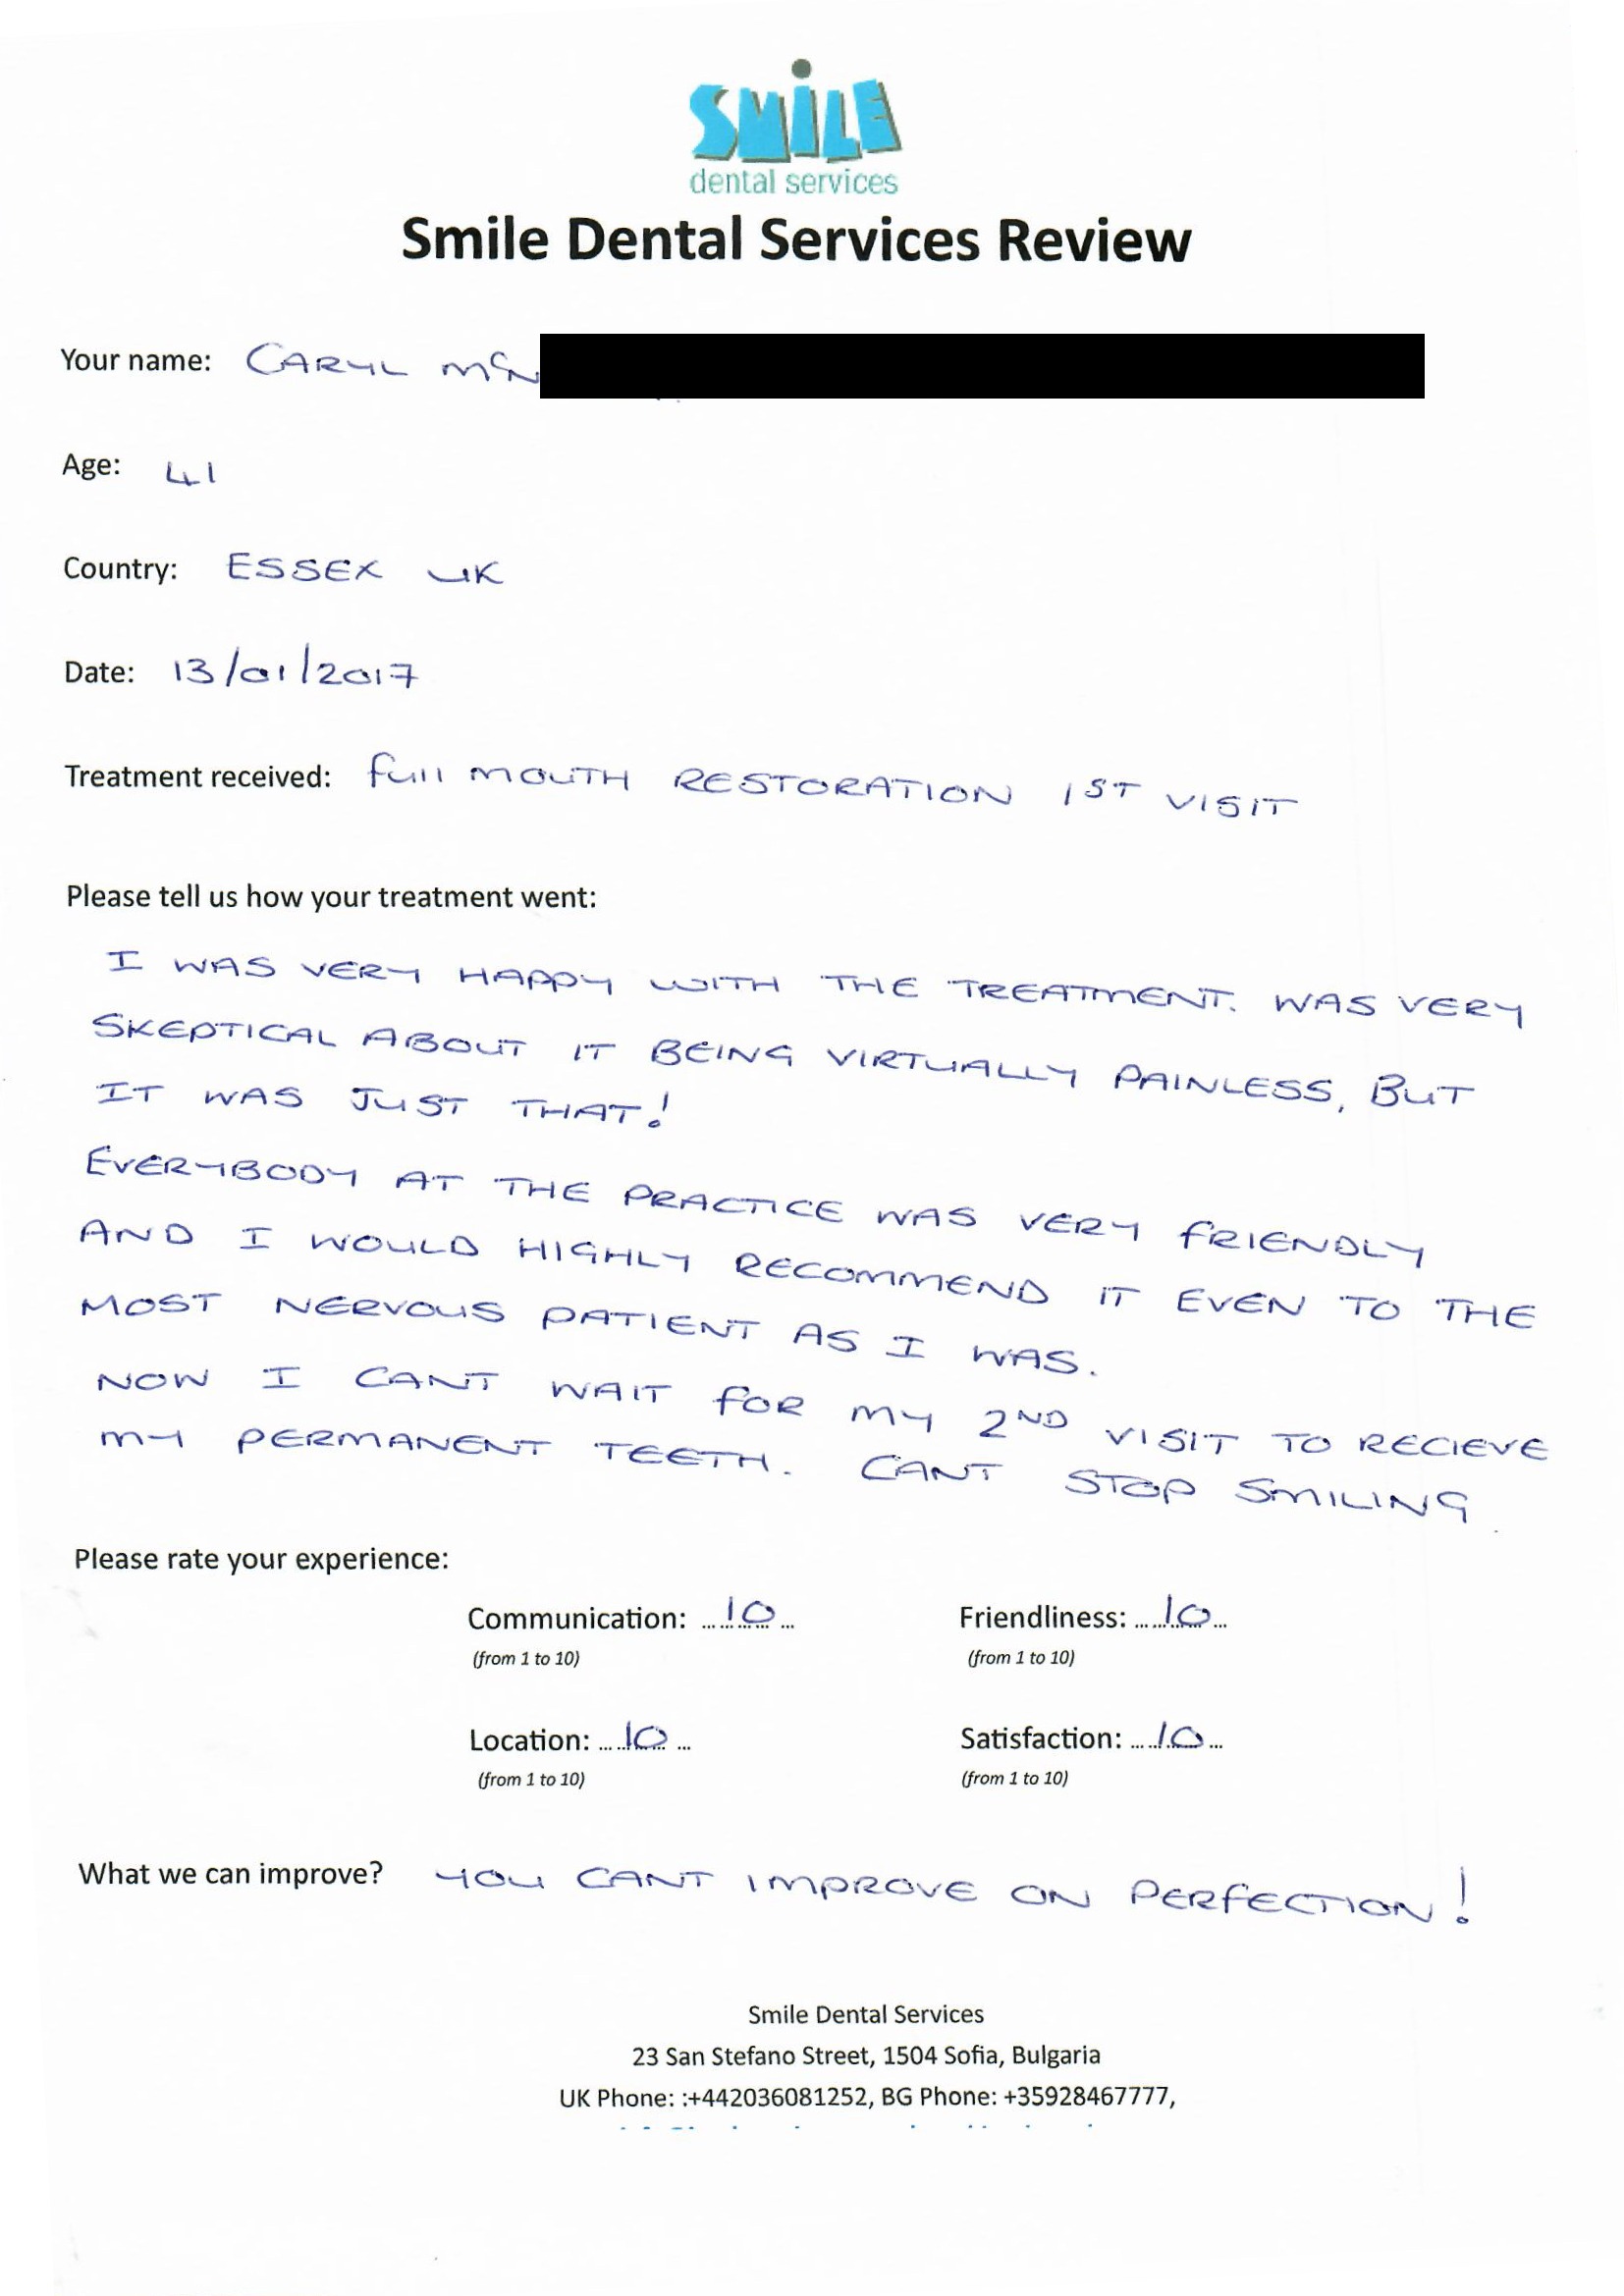 SMiLE
dental services
Smile Dental Services Review
Your name: CARYL McN
Age: 41
Country: ESSEX UK
Date: 13/01/2017
Treatment received: full MOUTH RESTORATION 1ST VISIT
Please tell us how your treatment went:
I WAS VERY HAPPY WITH THE TREATMENT. WAS VERY
SKEPTICAL ABOUT IT BEING VIRTUALLY PAINLESS, BUT
IT WAS JUST THAT!
EVERYBODY AT THE PRACTICE WAS VERY FRIENDLY
AND I WOULD HIGHLY RECOMMEND IT EVEN TO THE
MOST NERVOUS PATIENT AS I WAS.
NOW I CANT WAIT FOR MY 2ND VISIT TO RECIEVE
MY PERMANENT TEETH. CANT STOP SMILING
Please rate your experience:
Communication: ...10... Friendliness: ...10...
(from 1 to 10) (from 1 to 10)
Location: ...10... Satisfaction: ...10...
(from 1 to 10) (from 1 to 10)
What we can improve? YOU CANT IMPROVE ON PERFECTION!
Smile Dental Services
23 San Stefano Street, 1504 Sofia, Bulgaria
UK Phone: :+442036081252, BG Phone: +35928467777,